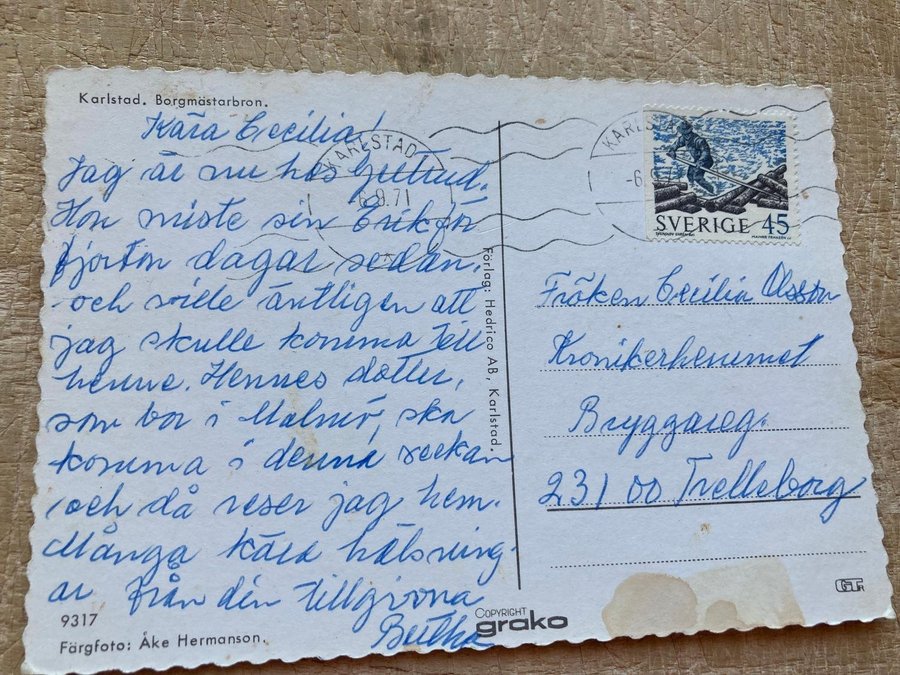 Karlstad. Borgmästarbron.
Kära Cecilia!
Jag är nu hos Gertrud.
Hon miste sin Erik för
fjorton dagar sedan,
och ville äntligen att
jag skulle komma till
henne. Hennes dotter,
som bor i Malmö, ska
komma i denna veckan
och då reser jag hem.
Många kära hälsning-
ar från din tillgivna
Bertha
9317
Färgfoto: Åke Hermanson.
Förlag: Hedrico AB, Karlstad.
COPYRIGHT
grako
KARLSTAD
6.9.71
KARL
-6.9
SVERIGE 45
Fröken Cecilia Olsson
Kronikerhemmet
Bryggareg.
231 00 Trelleborg